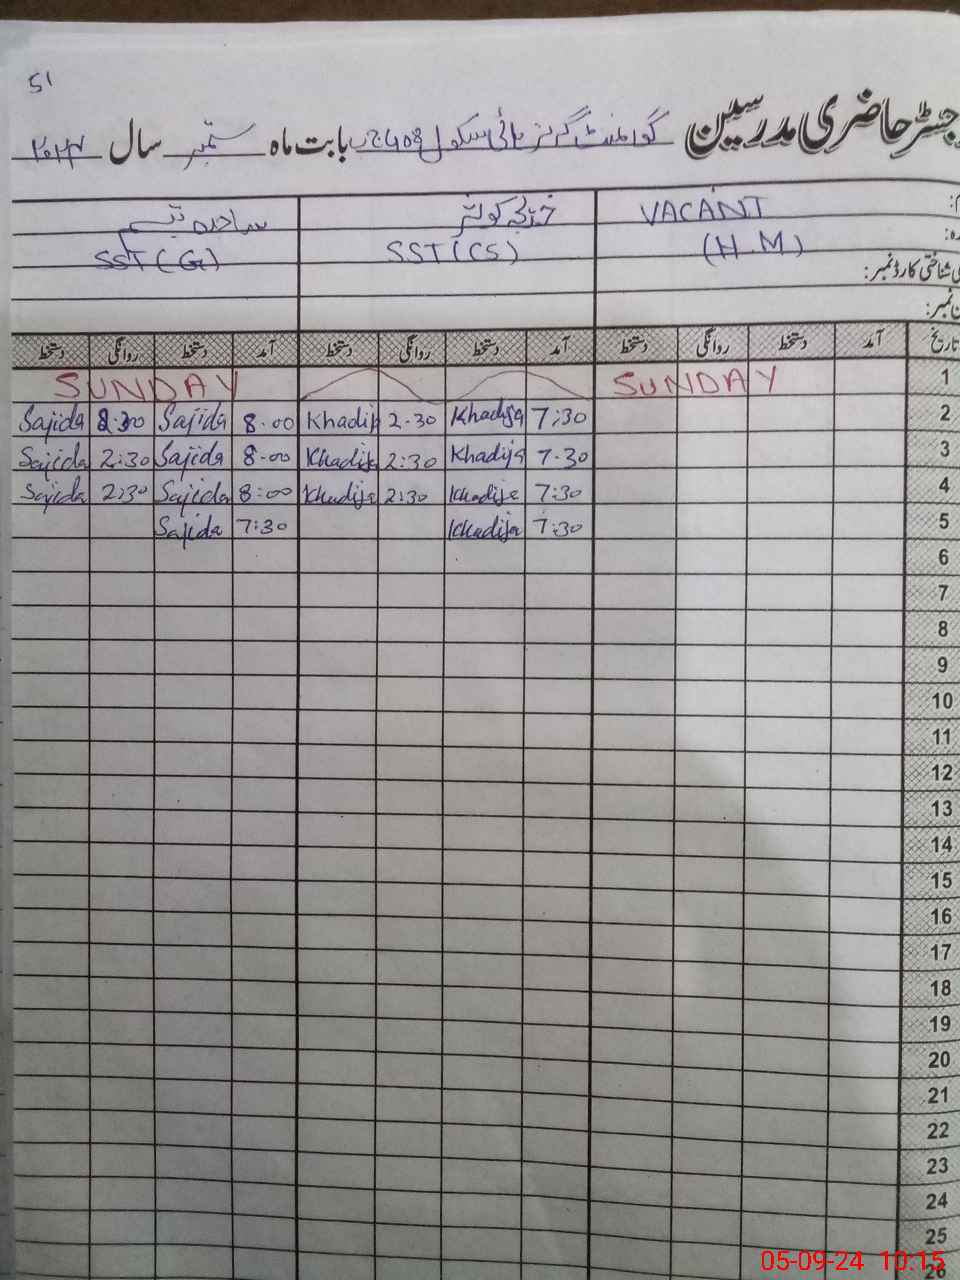 51
رجسٹر حاضری مدرسین گورنمنٹ گرلز ہائی سکول 408 ج ب بابت ماہ ستمبر سال ۲۰۲۴
VACANT خدیجہ کوثر ساجدہ
(H.M) SST (CS) SST (G)
شناختی کارڈ نمبر:
نمبر:
تاریخ آمد دستخط روانگی دستخط آمد دستخط روانگی دستخط آمد دستخط روانگی دستخط
SUNDAY SUNDAY 1
Sajida 2:30 Sajida 8.00 Khadija 2.30 Khadija 7:30 2
Sajida 2:30 Sajida 8.00 Khadija 2:30 Khadija 7.30 3
Sajida 2:30 Sajida 8:00 Khadija 2:30 Khadija 7:30 4
Sajida 7:30 Khadija 7:30 5
6
7
8
9
10
11
12
13
14
15
16
17
18
19
20
21
22
23
24
25
26
05-09-24 10:15